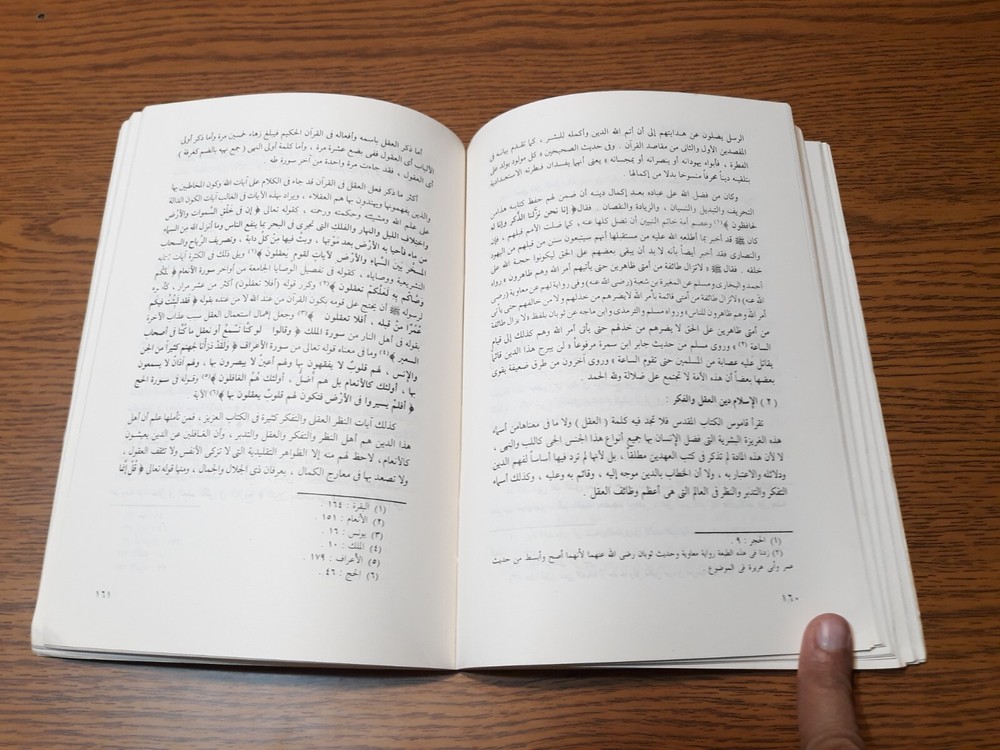 الرسل يضلون عن هدايتهم إلى أن أتم الله الدين وأكمله للبشر ، كما تقدم بيانه فى
المقصدين الأول والثانى من مقاصد القرآن . وفى حديث الصحيحين « كل مولود يولد على
الفطرة ، فأبواه يهودانه أو ينصرانه أو يمجسانه » يعنى أنهما يفسدان فطرته الاستعدادية
بتلقينه ديناً محرفاً منسوخا بدلا من إكمالها .
وكان من فضل الله على عباده بعد إكمال دينه أن ضمن لهم حفظ كتابه هذا من
التحريف والتبديل والنسيان ، والزيادة والنقصان .. فقال﴿ إنا نحن نزَّلنا الذِّكر وإنَّا له
لحافظون ﴾(١) وعصم أمة خاتم النبيين أن تضل كلها عنه ، كما ضلت الأمم قبلهم ، فإن
كان ﷺ قد أخبر بما أطلعه الله عليه من مستقبلها أنهم سيتبعون سنن من قبلهم من اليهود
والنصارى فقد أخبر أيضاً بأنه لابد أن يبقى بعضهم على الحق ليكونوا حجة لله على
خلقه . فقال ﷺ « لاتزال طائفة من أمتى ظاهرين حتى يأتيهم أمر الله وهم ظاهرون » رواه
أحمدو البخارى ومسلم عن المغيرة بن شعبة (رضى الله عنه) وفى رواية لهم عن معاوية (رضى
الله عنه) «لاتزال طائفة من أمتى قائمة بأمر الله لايضرهم من خذلهم ولا من خالفهم حتى يأتى
أمر الله وهم ظاهرون للناس» ورواه مسلم والترمذى وابن ماجه عن ثوبان بلفظ «لا تزال طائفة
من أمتى ظاهرين على الحق لا يضرهم من خذلهم حتى يأتى أمر الله وهم كذلك إلى قيام
الساعة (٢) » وروى مسلم من حديث جابر ابن سمرة مرفوعاً « لن يبرح هذا الدين قائماً
يقاتل عليه عصابة من المسلمين حتى تقوم الساعة » وروى آخرون من طرق ضعيفة يقوى
بعضها بعضاً أن هذه الأمة لا تجتمع على ضلالة ولله الحمد .
( ٢ ) الإسلام دين العقل والفكر :
تقرأ قاموس الكتاب المقدس فلا تجد فيه كلمة ( العقل ) ولا ما فى معناهامن أسماء
هذه الغريزة البشرية التى فضل الإنسان بها جميع أنواع هذا الجنس الحى كاللب والنهى ،
لا لأن هذه المادة لم تذكر فى كتب العهدين مطلقاً ، بل لأنها لم ترد فيها أساساً لفهم الدين
ودلائله والاعتبار به ، ولا أن الخطاب بالدين موجه إليه ، وقائم به وعليه ، وكذلك أسماء
التفكر والتدبر والنظر فى العالم التى هى أعظم وظائف العقل .
(١) الحجر : ٩ .
(٢) زدنا فى هذه الطبعة رواية معاوية وحديث ثوبان رضى الله عنهما لأنهما أصح وأبسط من حديث
عمر وأبى هريرة فى الموضوع .
١٦٠
أما ذكر العقل باسمه وأفعاله فى القرآن الحكيم فيبلغ زهاء خمسين مرة وأما ذكر أولى
الألباب أى العقول ففى بضع عشرة مرة ، وأما كلمة أولى النهى ( جمع نهية بالضم كغرفة )
أى العقول ، فقد جاءت مرة واحدة من آخر سورة طه
أكثر ما ذكر فعل العقل فى القرآن قد جاء فى الكلام على آيات الله وكون المخاطبين بها
والذين يفهمونها ويهتدون بها هم العقلاء ، ويراد بهذه الآيات فى الغالب آيات الكون الدالة
على علم الله ومشيئته وحكمته ورحمته ، كقوله تعالى ﴿ إن فى خَلْقِ السَّموات والأرض
واختلافِ الليل والنهار والفلك التى تجرى فى البحر بما ينفع الناس وما أنزل الله من السماء
من ماء فأحيا به الأرْض بعد مَوْتها ، وبثَّ فيها من كلِّ دابة ، وتصريف الرِّياح والسحاب
المسخَّر بَيْن السَّماء والأرْض لآيات لقوم يعقلون ﴾(١) ويلى ذلك فى الكثرة آيات كتابه
التشريعية ووصاياه ، كقوله فى تفصيل الوصايا الجامعة من أواخر سورة الأنعام ﴿ ذَلكُم
وصَّاكُم به لَعَلَّكُم تعقلون ﴾(٢) وكرر قوله (أفلا تعقلون) أكثر من عشر مرار ، كقوله
لرسوله ﷺ أن يحتج على قومه بكون القرآن من عند الله لا من عنده بقوله ﴿ فقد لَبِثْتُ فيكُم
عُمُرًا منْ قبله ، أفلا تعقلون ﴾(٣) وجعل إهمال استعمال العقل سبب عذاب الآخرة
بقوله فى أهل النار من سورة الملك ﴿ وقالوا لو كنّا نَسْمعُ أو نعقل ما كنَّا فى أصحابِ
السعير ﴾(٤) وما فى معناه قوله تعالى من سورة الأعراف ﴿ ولقَدْ ذرَأنا لجهنم كثيراً من الجنّ
والإنس ، لهم قلوبٌ لا يفقهون بها ولهم أعينٌ لا يبصرون بها ، ولهم آذان لا يسمعون
بها ، أولئك كالأنعام بل هم أضل ، أولئك هُمُ الغافلون ﴾(٥) وقوله فى سورة الحج
﴿ أفلمْ يسيروا فى الأرْض فتكون لهم قلوب يعقلون بها ﴾(٦) الآية .
كذلك آيات النظر العقلى والتفكر كثيرة فى الكتاب العزيز ، فمن تأملها علم أن أهل
هذا الدين هم أهل النظر والتفكر والعقل والتدبر ، وأن الغافلين عن الدين يعيشون
كالأنعام، لاحظ لهم منه إلا الظواهر التقليدية التى لا تزكى الأنفس ولا تثقف العقول ،
ولا تصعد بها فى معارج الكمال ، بعرفان ذى الجلال والجمال ، ومنها قوله تعالى ﴿ قُلْ إنَّما
(١) البقرة : ١٦٤ .
(٢) الأنعام : ١٥١ .
(٣) يونس : ١٦ .
(٤) الملك : ١٠ .
(٥) الأعراف : ١٧٩ .
(٦) الحج : ٤٦ .
١٦١